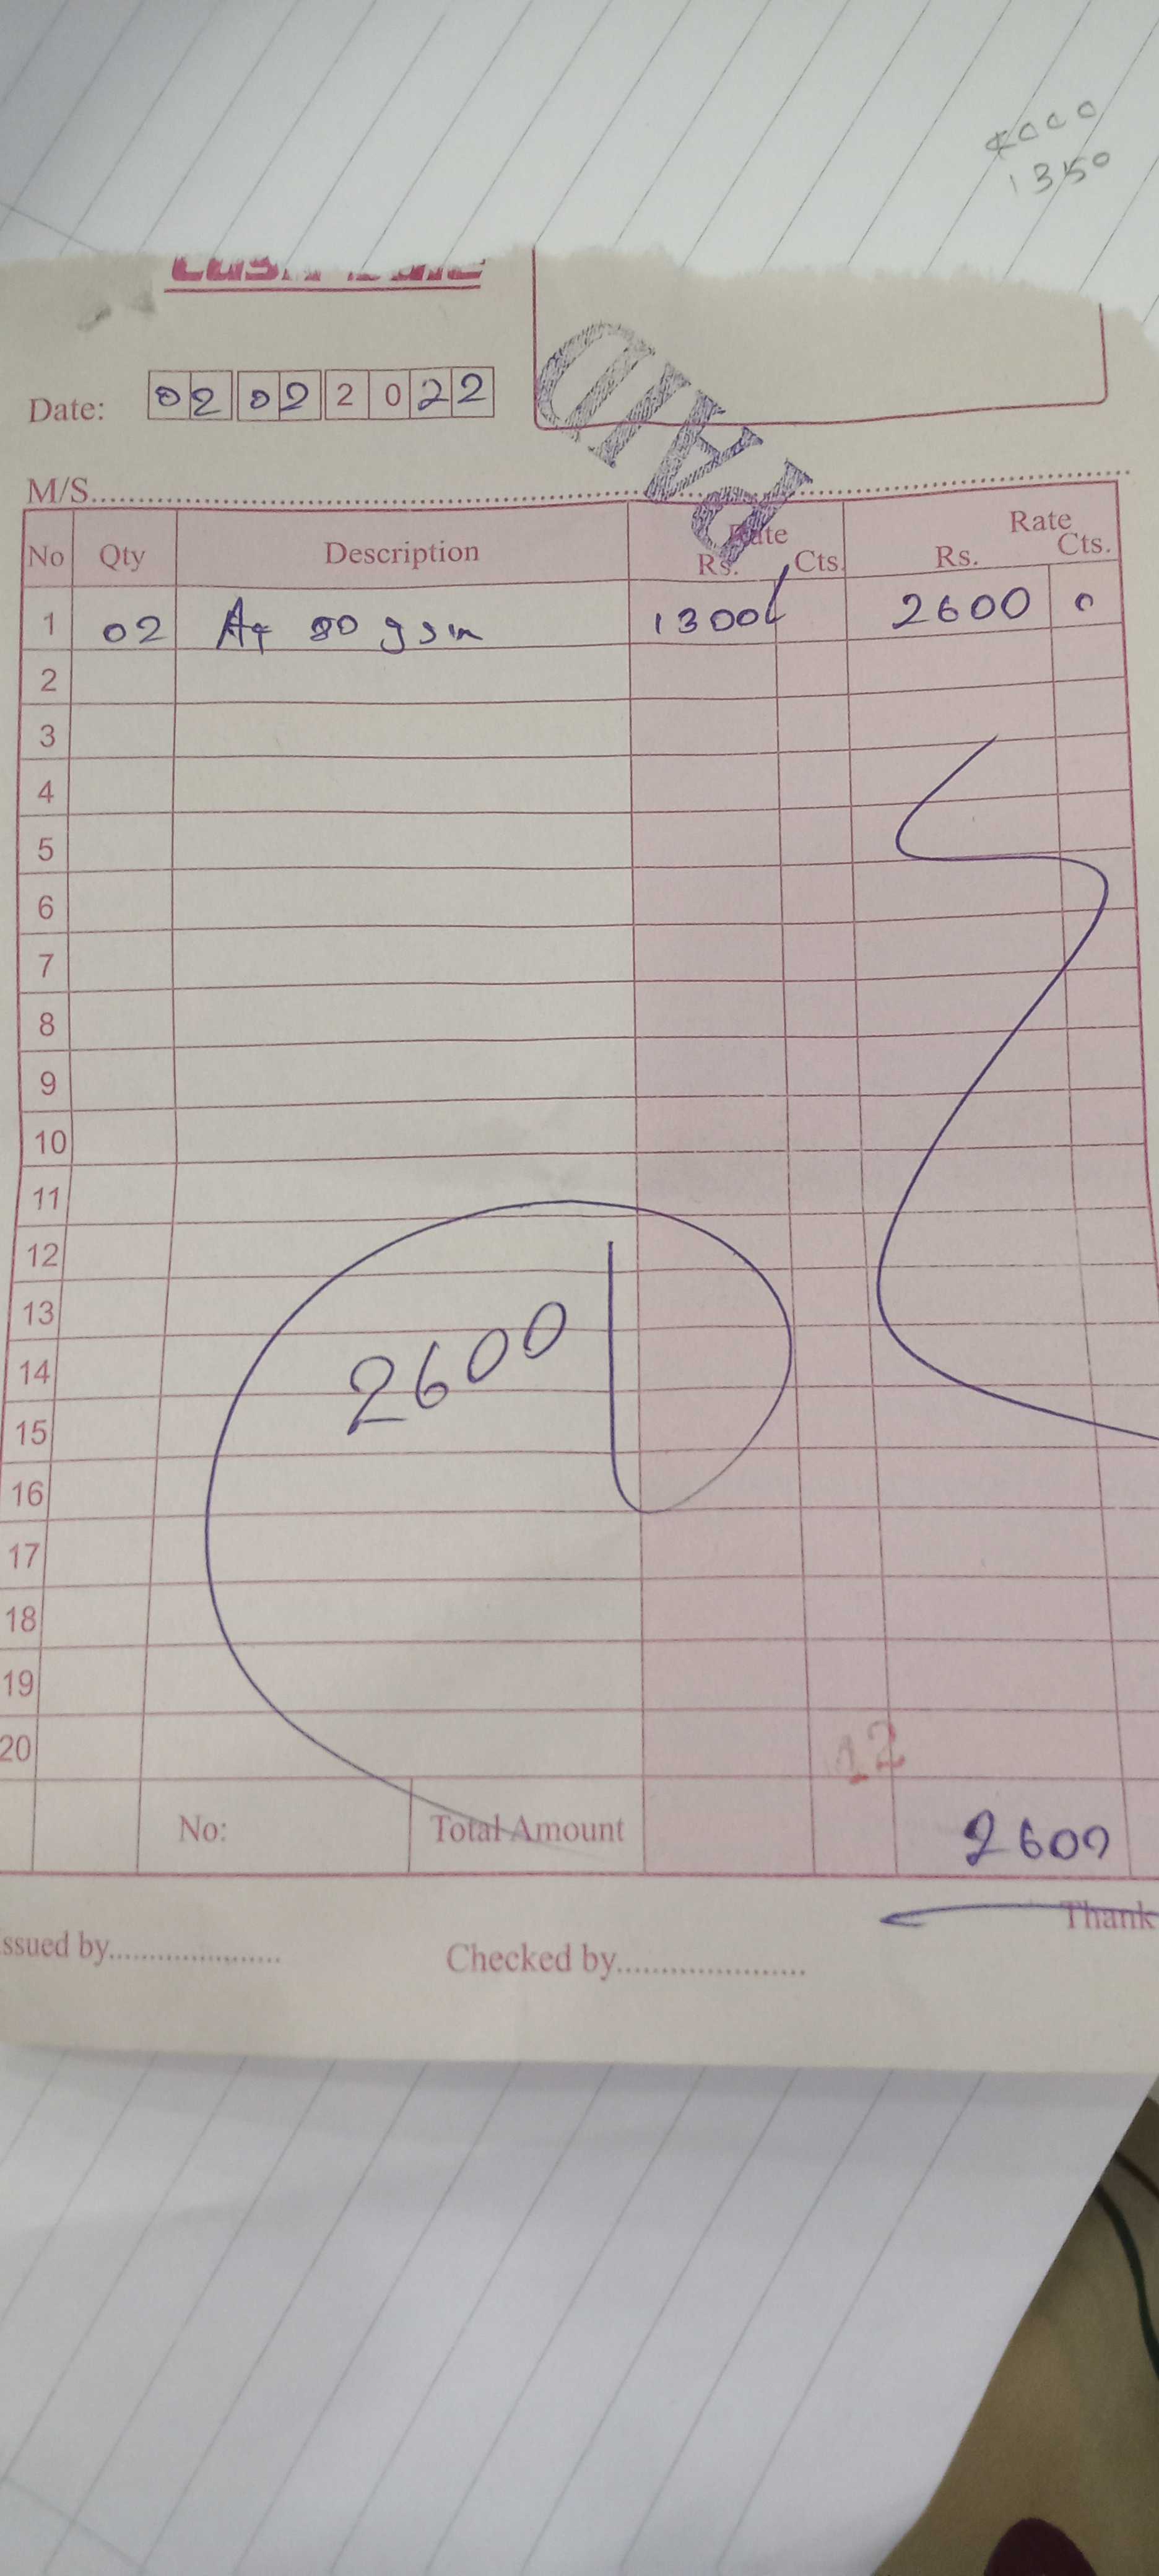 1350
Date: 02 02 2022
PAID
M/S
No Qty Description Rate Rs. Cts. Rate Rs. Cts.
1 02 A4 80 gsm 1300/ 2600 0
2
3
4
5
6
7
8
9
10
11
12
13
2600
14
15
16
17
18
19
20
12
No: Total Amount 2600
Thank
ssued by
Checked by